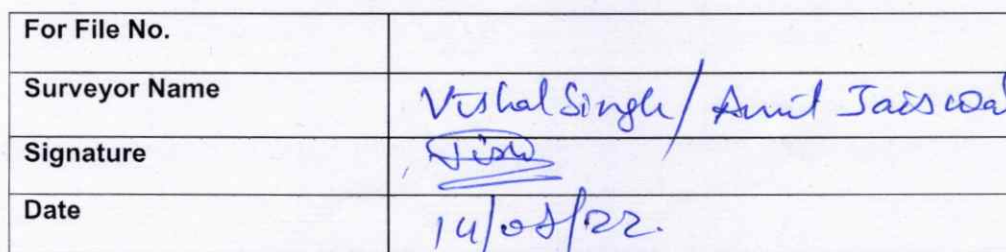 For File No.
Surveyor Name Vishal Singh / Amit Jaiswal
Signature
Date